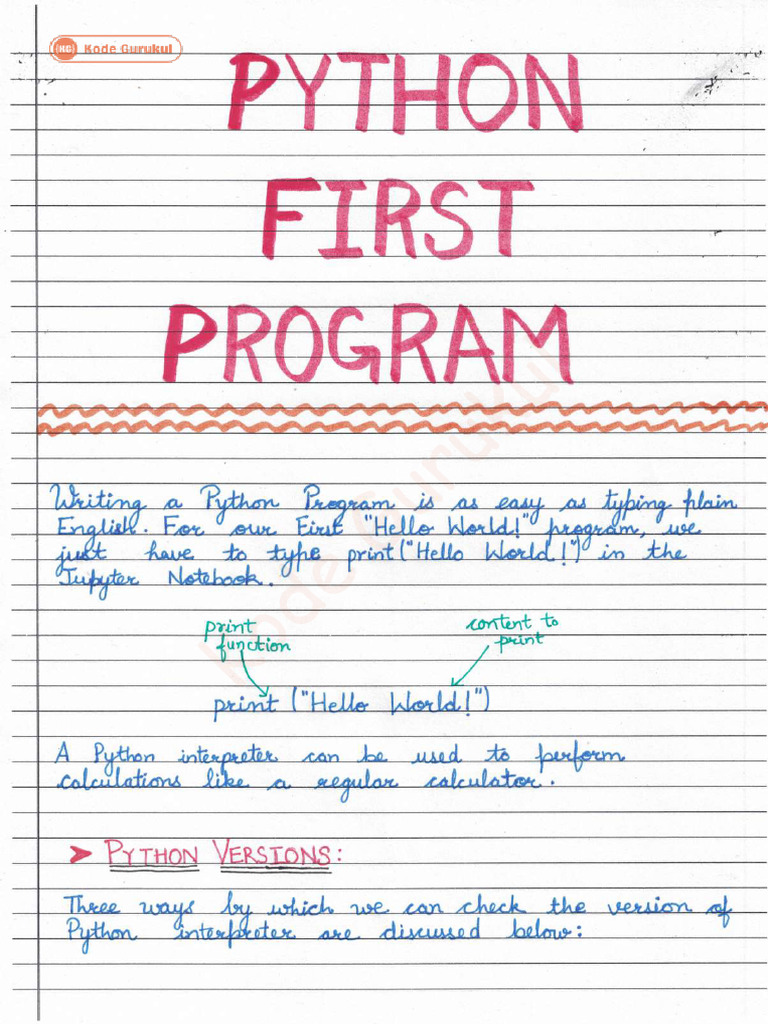 KG Kode Gurukul
PYTHON
FIRST
PROGRAM
Writing a Python Program is as easy as typing plain
English. For our First "Hello World!" program, we
just have to type print("Hello World!") in the
Jupyter Notebook.
print
function
content to
print
print ("Hello World!")
A Python interpreter can be used to perform
calculations like a regular calculator.
➤ PYTHON VERSIONS:
Three ways by which we can check the version of
Python interpreter are discussed below:
Kode Gurukul